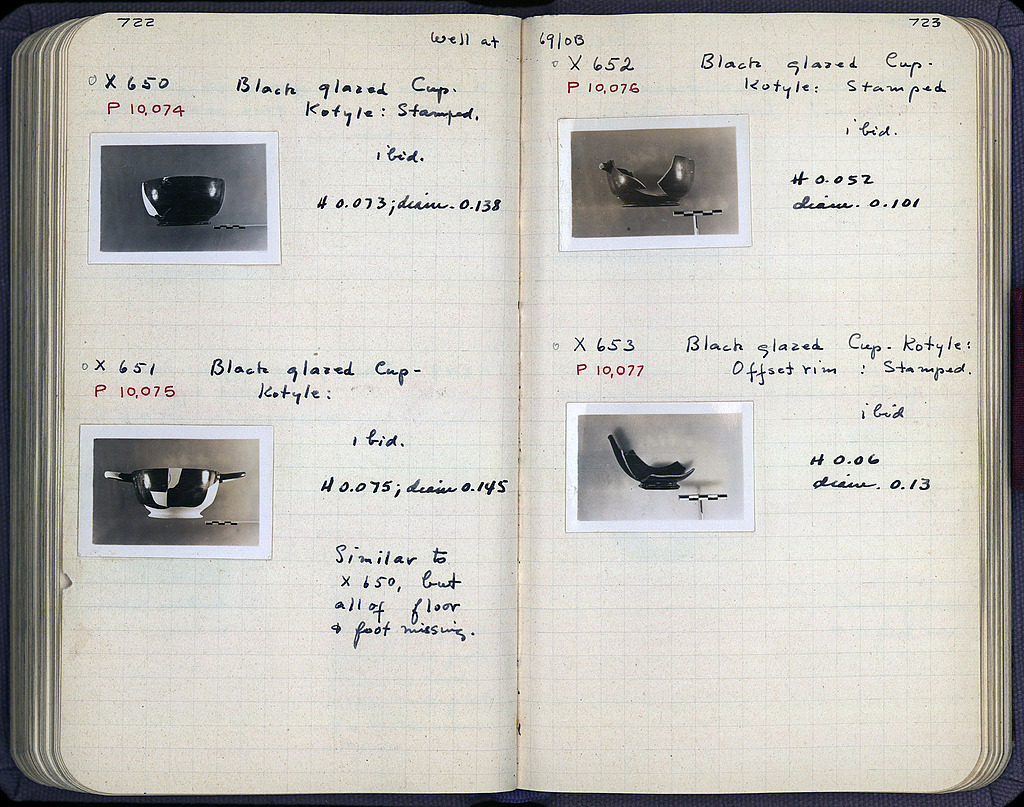 722
Well at
X 650 Black glazed Cup-
P 10,074 Kotyle: Stamped.
ibid.
H 0.073; diam. 0.138
X 651 Black glazed Cup-
P 10,075 Kotyle:
ibid.
H 0.075; diam 0.145
Similar to
X 650, but
all of floor
& foot missing.
723
69/ΟΒ
X 652 Black glazed Cup-
P 10,076 Kotyle: Stamped
ibid.
H 0.052
diam. 0.101
X 653 Black glazed Cup-Kotyle:
P 10,077 Offset rim : Stamped.
ibid
H 0.06
diam. 0.13